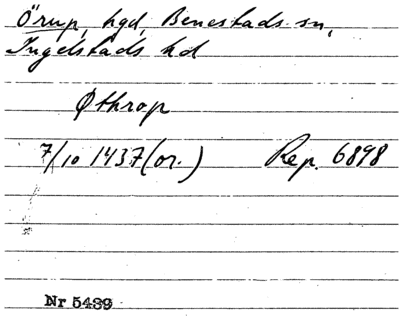 Örup, hgd, Benestads sn,
Ingelstads hd
Øthrop
7/10 1437 (or.) Rep. 6898
Nr 5439